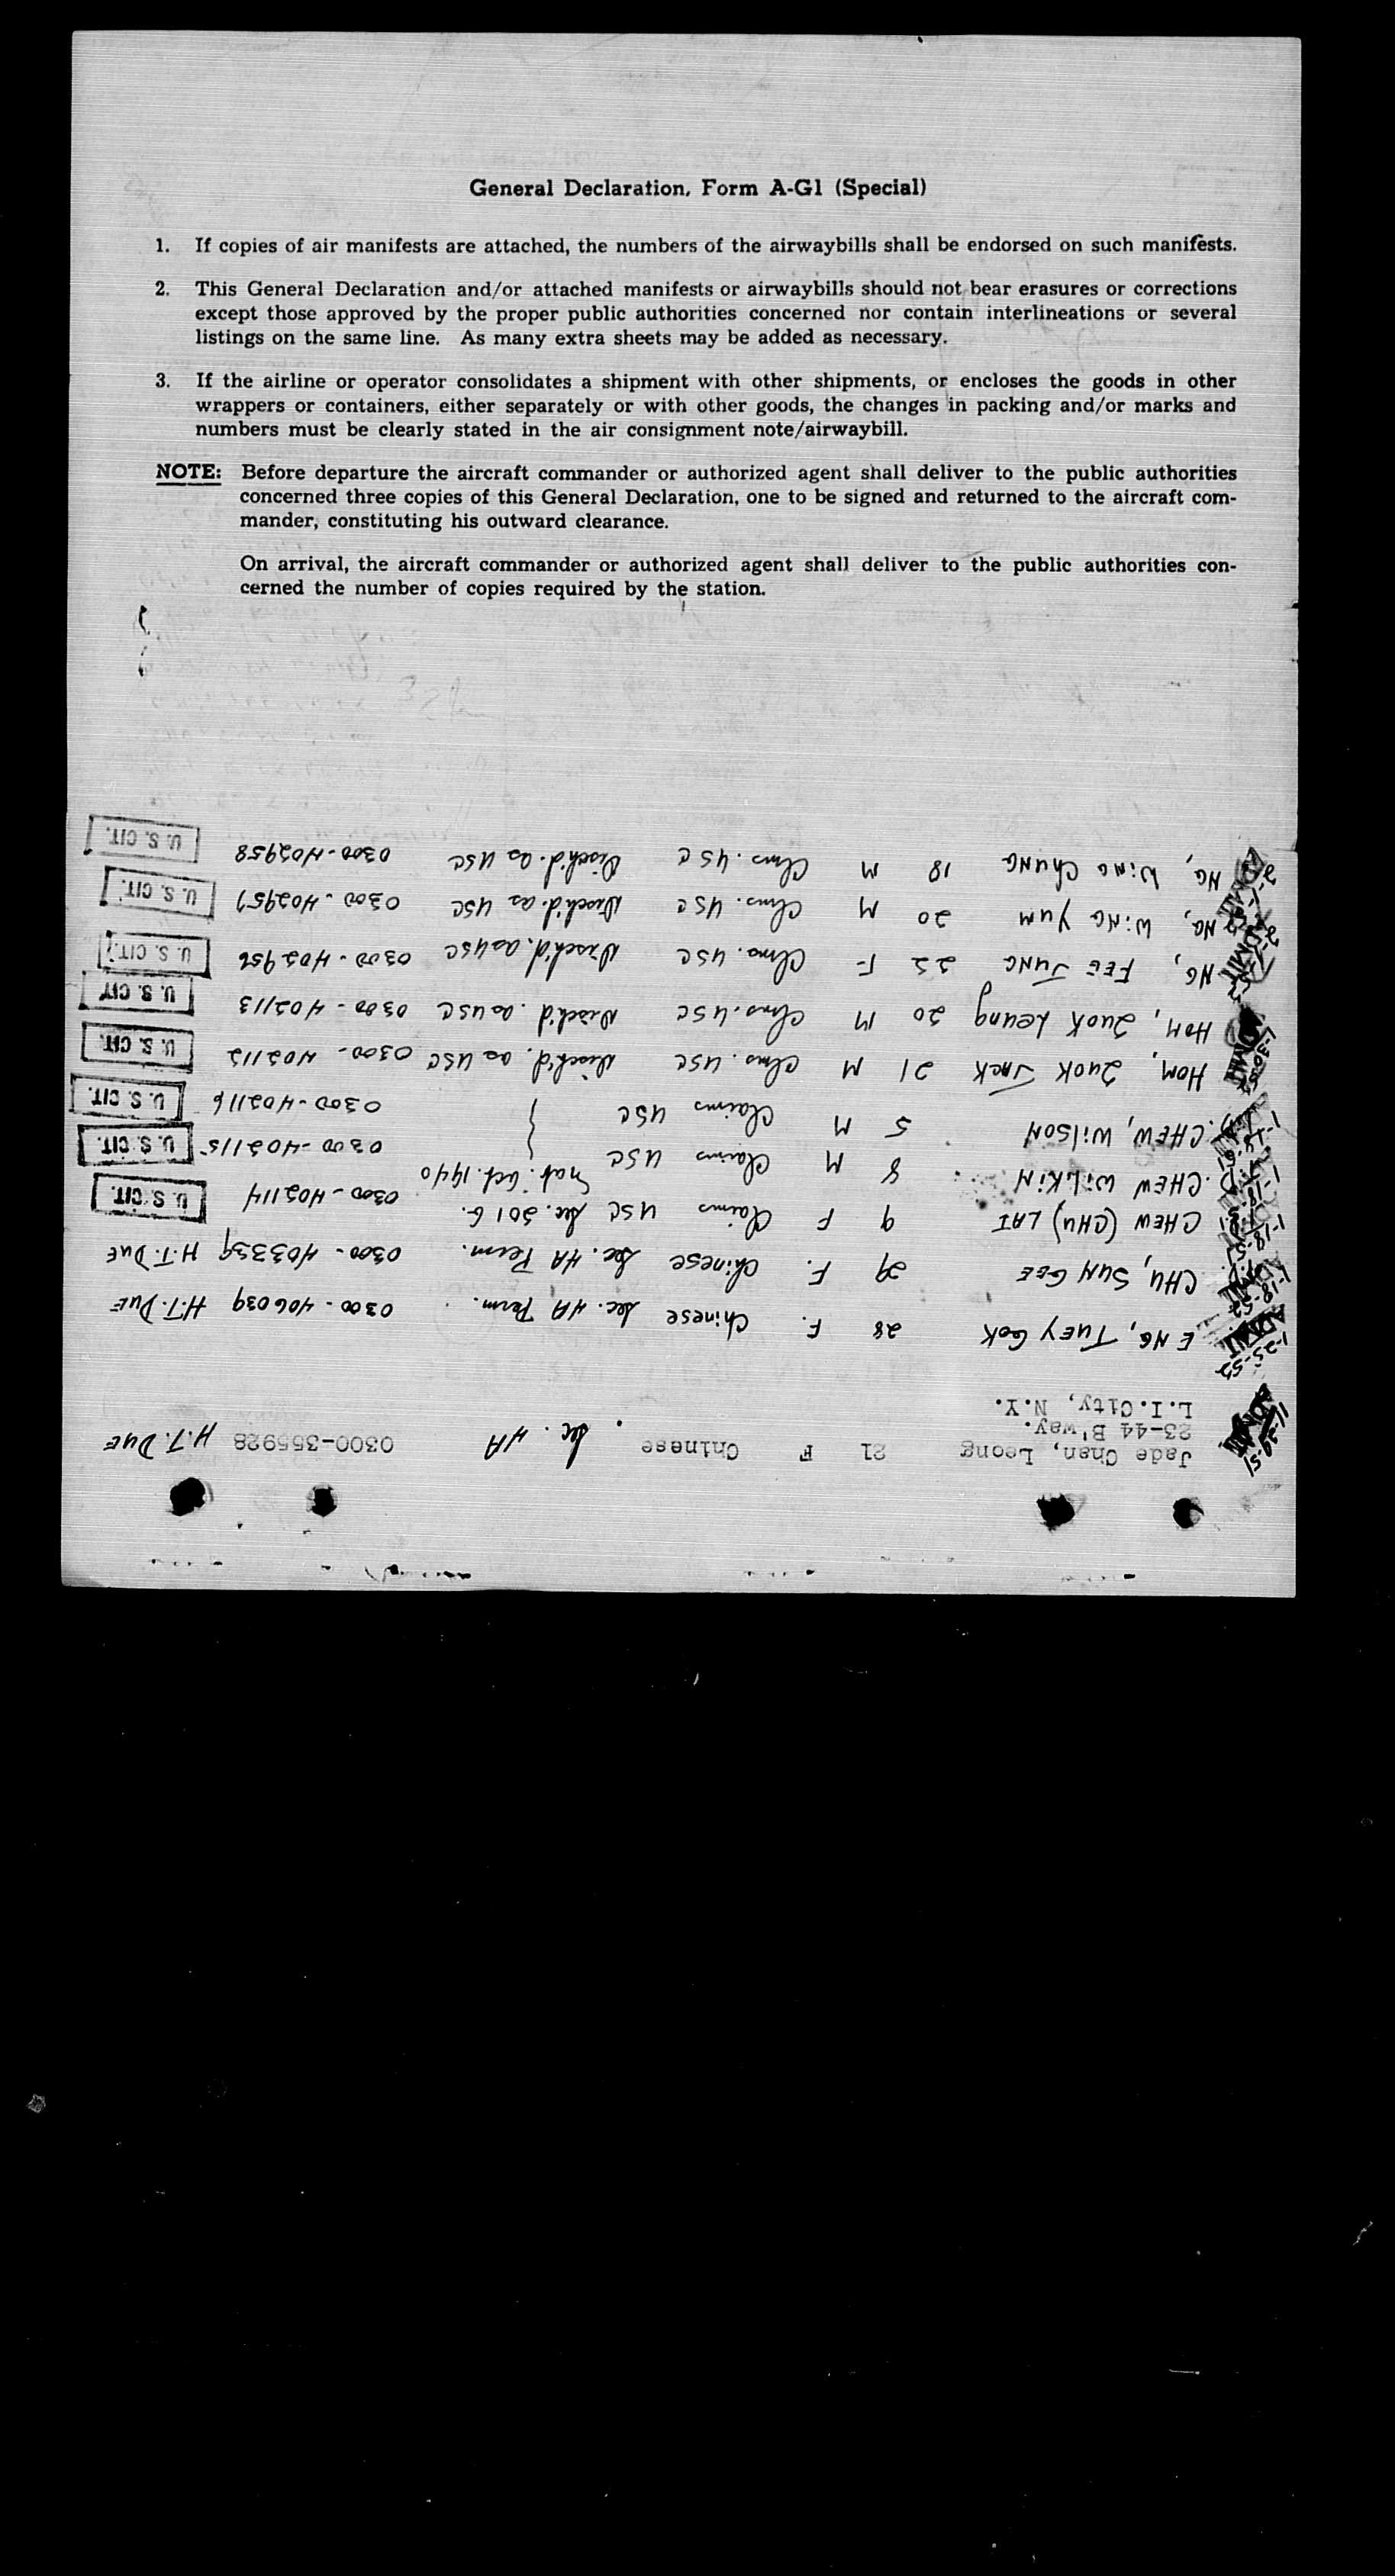 General Declaration, Form A-G1 (Special)
1. If copies of air manifests are attached, the numbers of the airwaybills shall be endorsed on such manifests.
2. This General Declaration and/or attached manifests or airwaybills should not bear erasures or corrections
except those approved by the proper public authorities concerned nor contain interlineations or several
listings on the same line. As many extra sheets may be added as necessary.
3. If the airline or operator consolidates a shipment with other shipments, or encloses the goods in other
wrappers or containers, either separately or with other goods, the changes in packing and/or marks and
numbers must be clearly stated in the air consignment note/airwaybill.
NOTE: Before departure the aircraft commander or authorized agent shall deliver to the public authorities
concerned three copies of this General Declaration, one to be signed and returned to the aircraft com-
mander, constituting his outward clearance.
On arrival, the aircraft commander or authorized agent shall deliver to the public authorities con-
cerned the number of copies required by the station.
11-29-51 Jade Chan, Leong 21 F Chinese Sec. 4A 0300-355928 H.T. Due
23-44 B'way.
L.I.City, N.Y.
1-25-52 ADMIT ENG, TUEY GOK 28 F. Chinese Sec. 4A Perm. 0300-406039 H.T. DUE
1-18-52 CHU, SUN GEE 29 F. Chinese Sec. 4A Perm. 0300-403339 H.T. DUE
CHEW (CHU) LAI 9 F Claims USC Sec. 201 G. 0300-402114 U. S. CIT.
CHEW WILKIN 8 M Claims USC Nat. Act. 1940 0300-402115 U. S. CIT.
CHEW, WILSON 5 M Claims USC } 0300-402116 U. S. CIT.
1-30-52 ADMIT HOM, QUOK JACK 21 M Clms. USC Disch'd. as USC 0300-402112 U. S. CIT.
HOM, QUOK Leung 20 M Clms. USC Disch'd. as USC 0300-402113 U. S. CIT.
NG, FEE JUNG 22 F Clms. USC Disch'd. as USC 0300-402956 U. S. CIT.
NG, WING YUM 20 M Clms. USC Disch'd. as USC 0300-402957 U. S. CIT.
NG, WING CHUNG 18 M Clms. USC Disch'd. as USC 0300-402958 U. S. CIT.